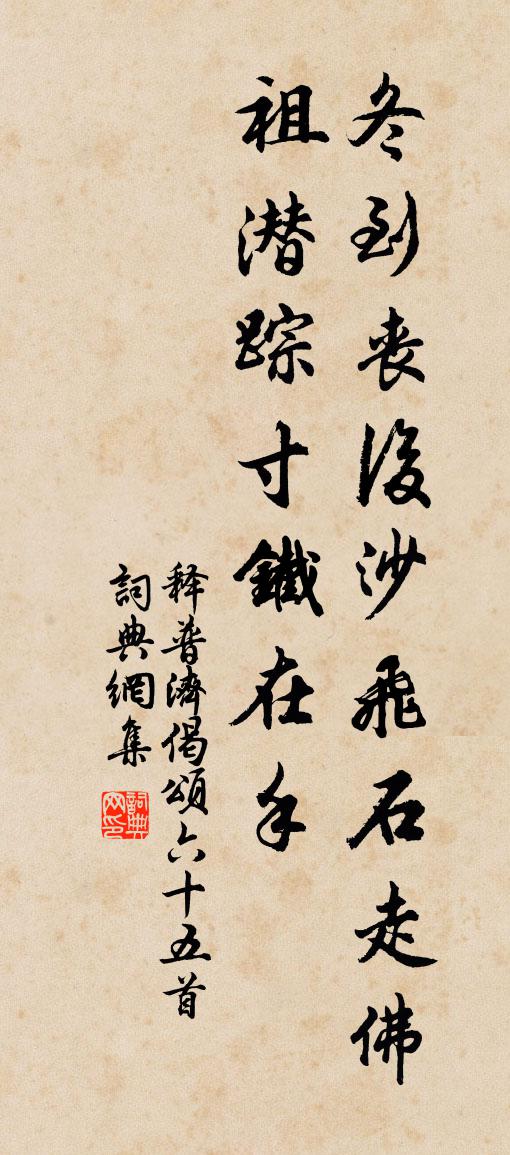 冬到丧後沙飛石走佛
祖潜踪寸鐵在手
释普濟偈頌六十五首
詞典網集
詞典网印